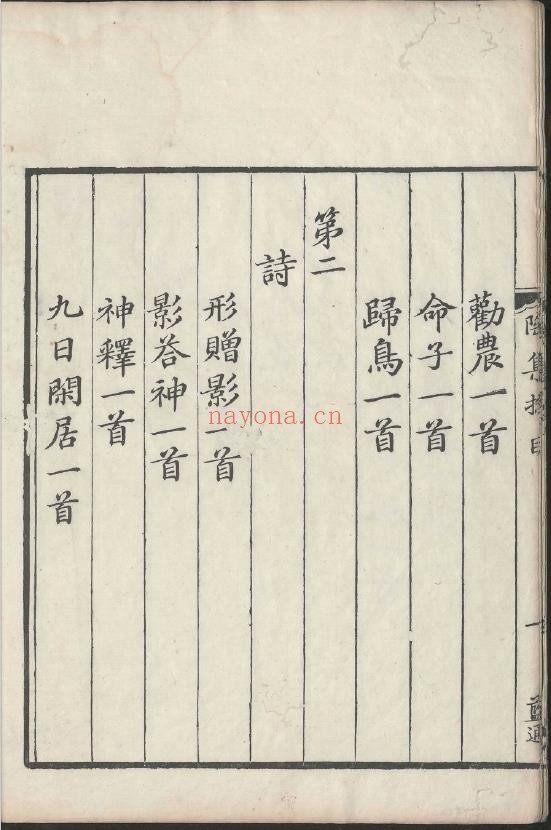 勸農一首
命子一首
歸鳥一首
第二
詩
形贈影一首
影荅神一首
神釋一首
九日閑居一首
一
nayona.cn